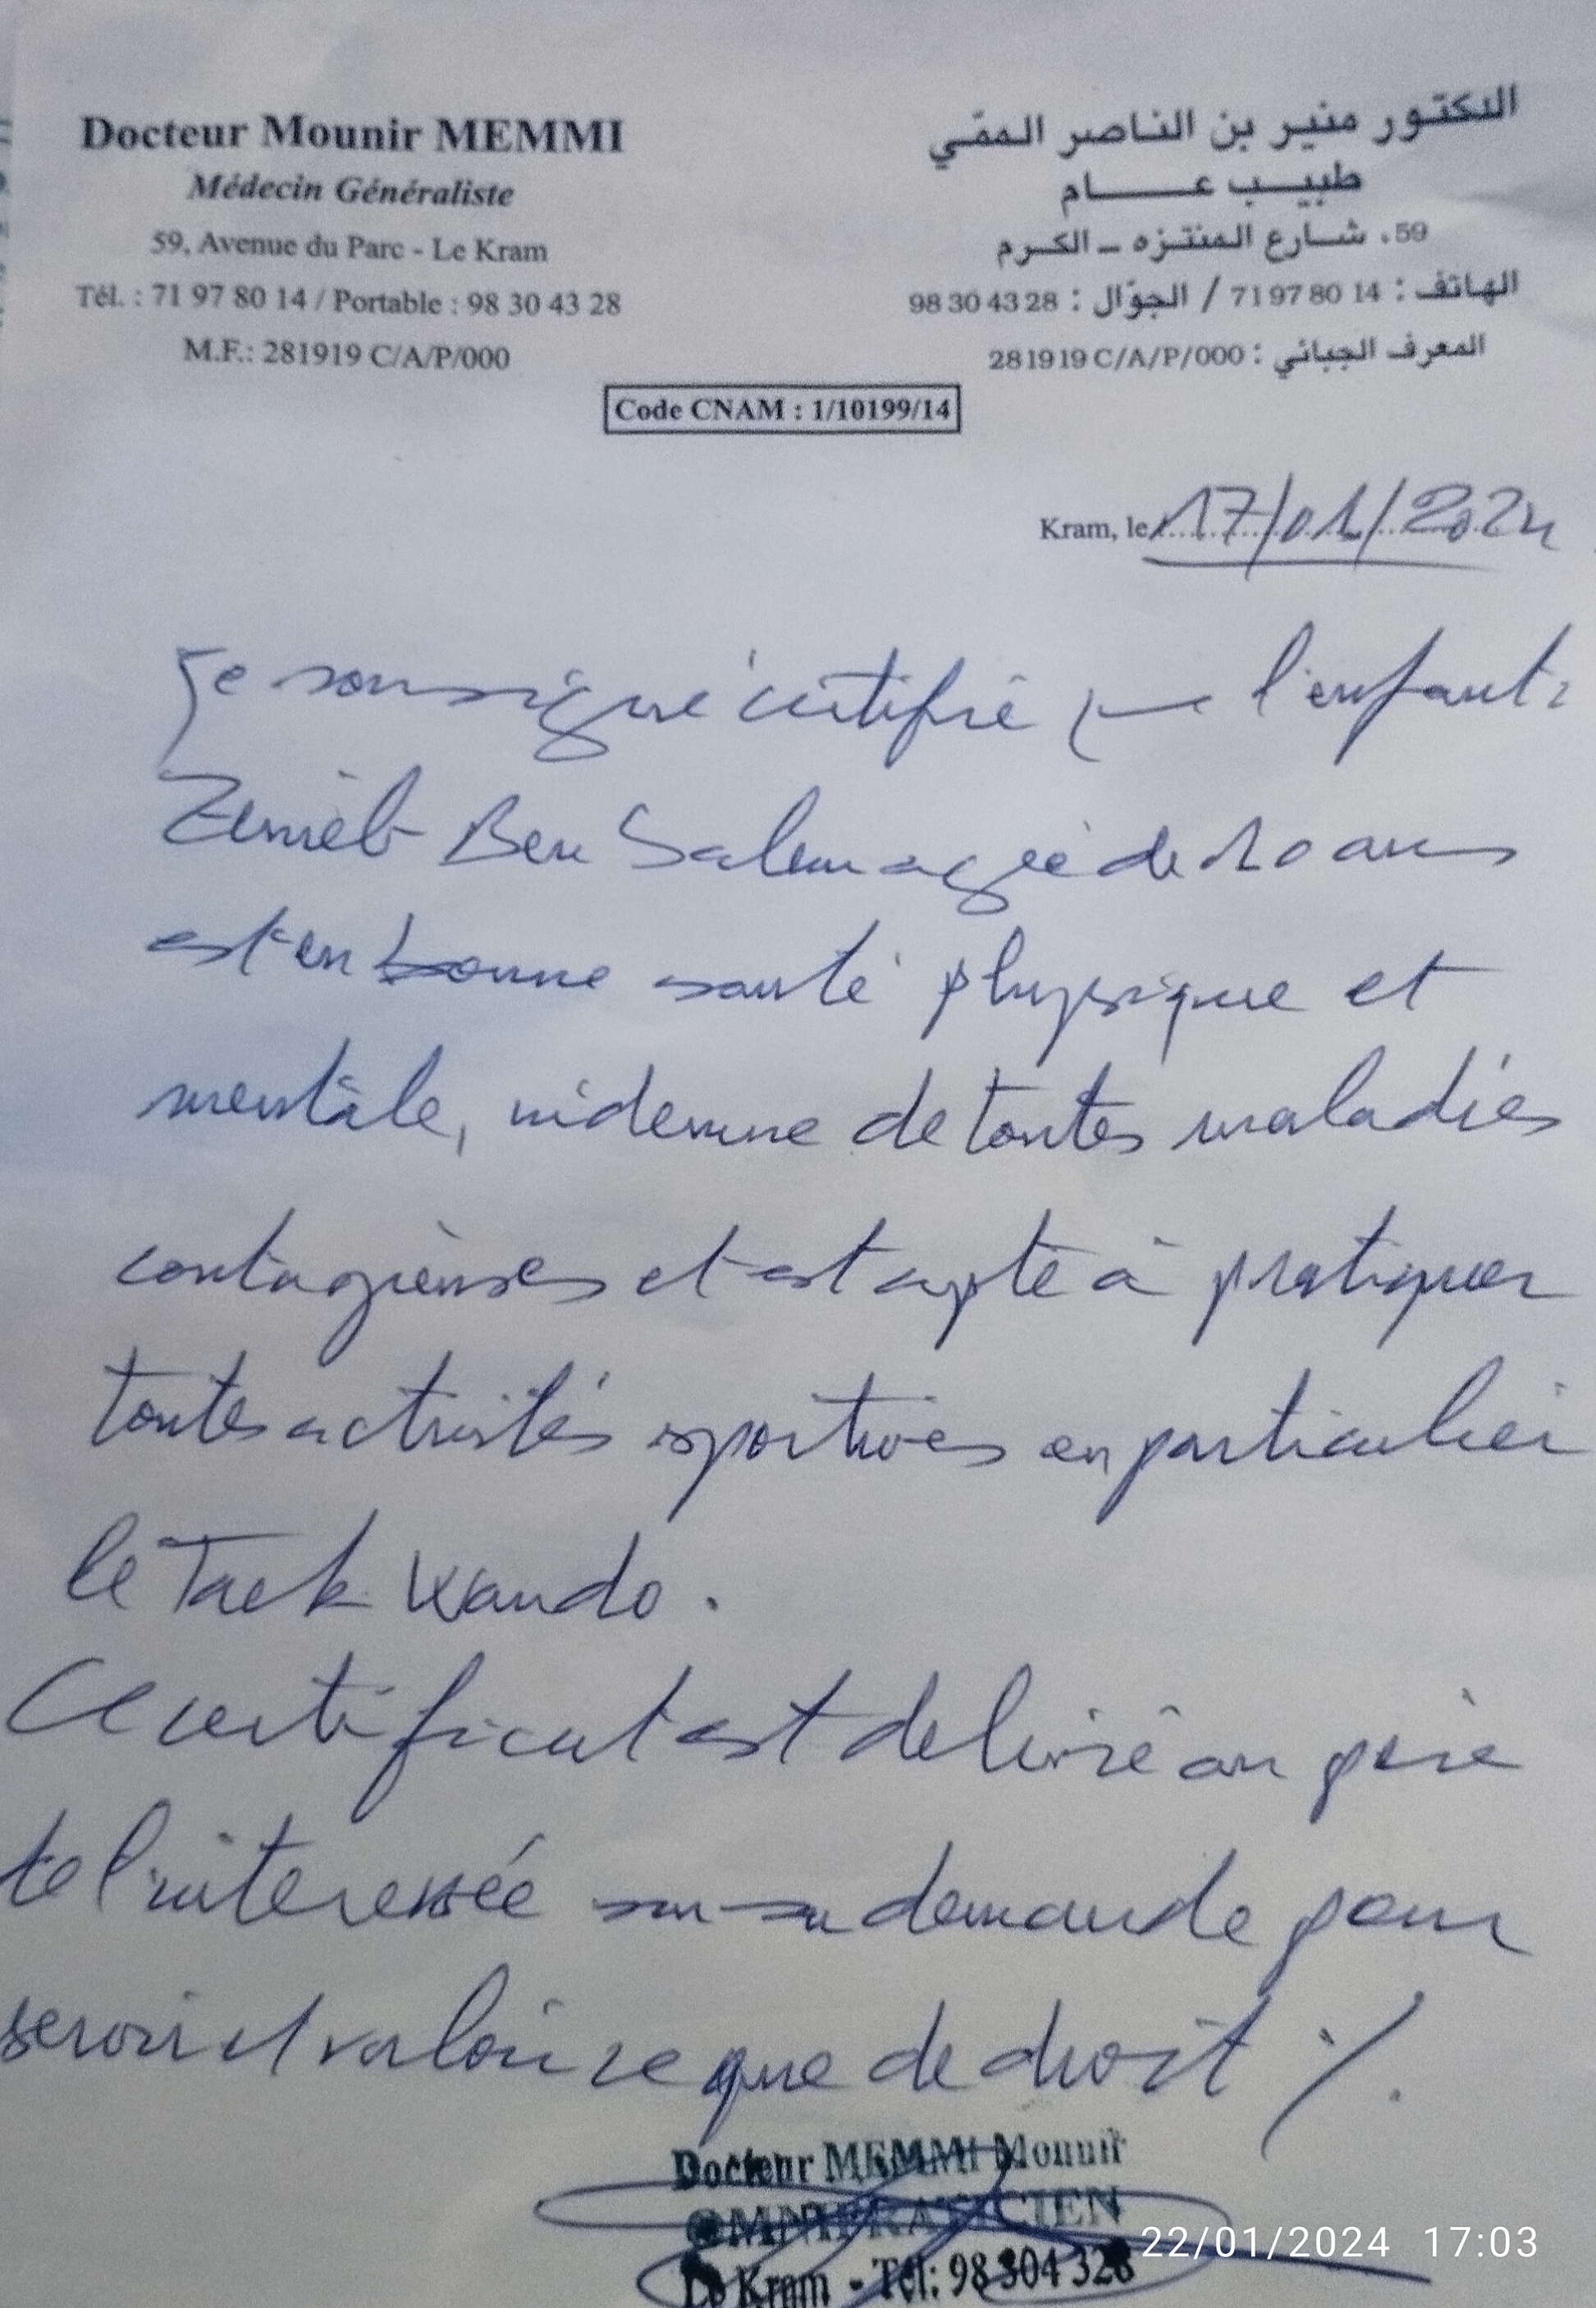 Docteur Mounir MEMMI
Médecin Généraliste
59, Avenue du Parc - Le Kram
Tél. : 71 97 80 14 / Portable : 98 30 43 28
M.F.: 281919 C/A/P/000
الدكتور منير بن الناصر الممّي
طبيب عام
59، شارع المنتزه - الكرم
الهاتف : 14 80 97 71 / الجوّال : 28 43 30 98
المعرف الجبائي : 281919 C/A/P/000
Code CNAM : 1/10199/14
Kram, le 17/01/2024
Je soussigné certifie que l'enfant :
Zeineb Ben Salem agée de 10 ans
est en bonne santé physique et
mentale, indemne de toutes maladies
contagieuses et est apte à pratiquer
toutes activités sportives en particulier
le Taek Wando.
Ce certificat est delivré au père
de l'interessée sur sa demande pour
servir et valoir ce que de droit ./.
Docteur MEMMI Mounir
OMNIPRATICIEN
Le Kram - Tél: 98 304 328
22/01/2024 17:03